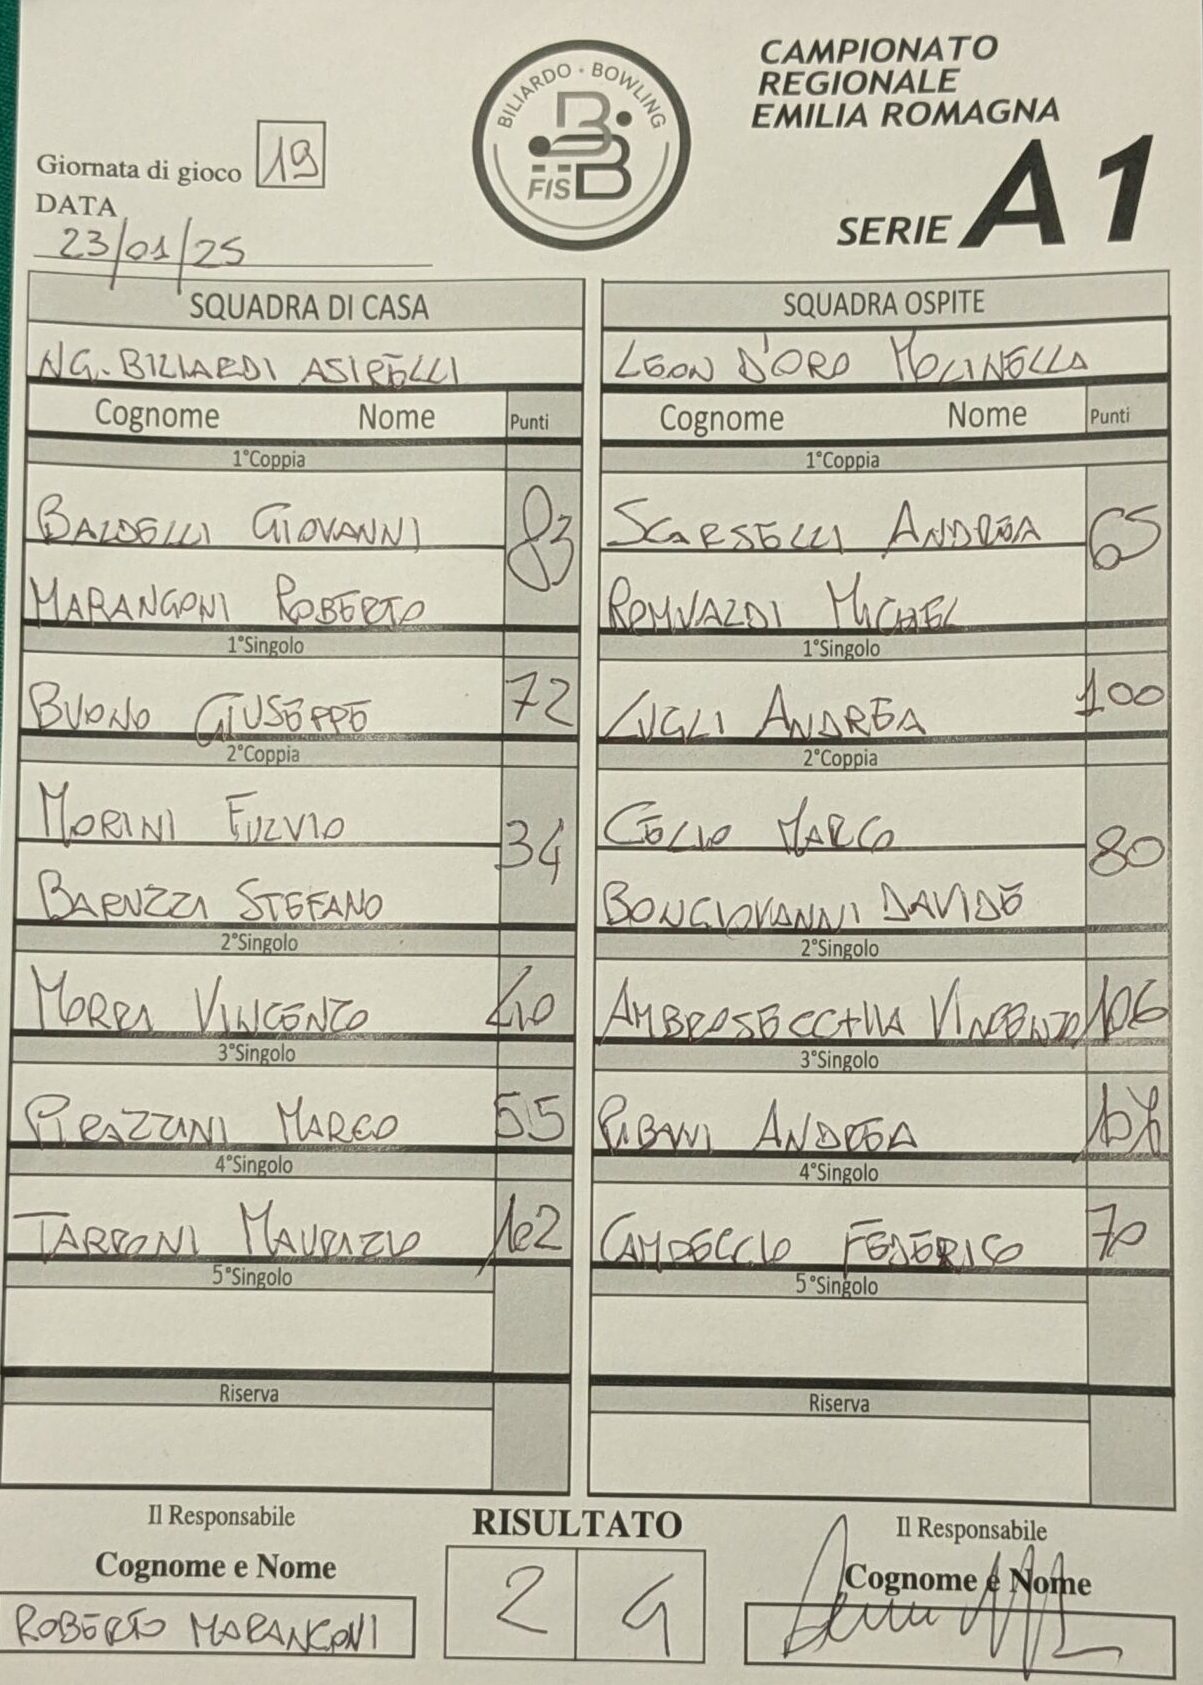 BILIARDO • BOWLING
FISBB
CAMPIONATO
REGIONALE
EMILIA ROMAGNA
SERIE A1
Giornata di gioco 19
DATA
23/01/25
SQUADRA DI CASA
NG. BILIARDI ASIRELLI
Cognome Nome Punti
1°Coppia
BALDELLI GIOVANNI 83
MARANGONI ROBERTO
1°Singolo
BUONO GIUSEPPE 72
2°Coppia
MORINI FULVIO 34
BARUZZI STEFANO
2°Singolo
MORRI VINCENZO 40
3°Singolo
PIRAZZINI MARCO 55
4°Singolo
TARRONI MAURIZIO 102
5°Singolo
Riserva
SQUADRA OSPITE
LEON D'ORO MOLINELLA
Cognome Nome Punti
1°Coppia
SCARSELLI ANDREA 65
ROMUALDI MICHEL
1°Singolo
LUGLI ANDREA 100
2°Coppia
CELIO MARCO 80
BONGIOVANNI DAVIDE
2°Singolo
AMBROSECCHIA VINCENZO 106
3°Singolo
RIBANI ANDREA
4°Singolo
CAMPECCIO FEDERICO 70
5°Singolo
Riserva
Il Responsabile
Cognome e Nome
ROBERTO MARANGONI
RISULTATO
2 4
Il Responsabile
Cognome e Nome